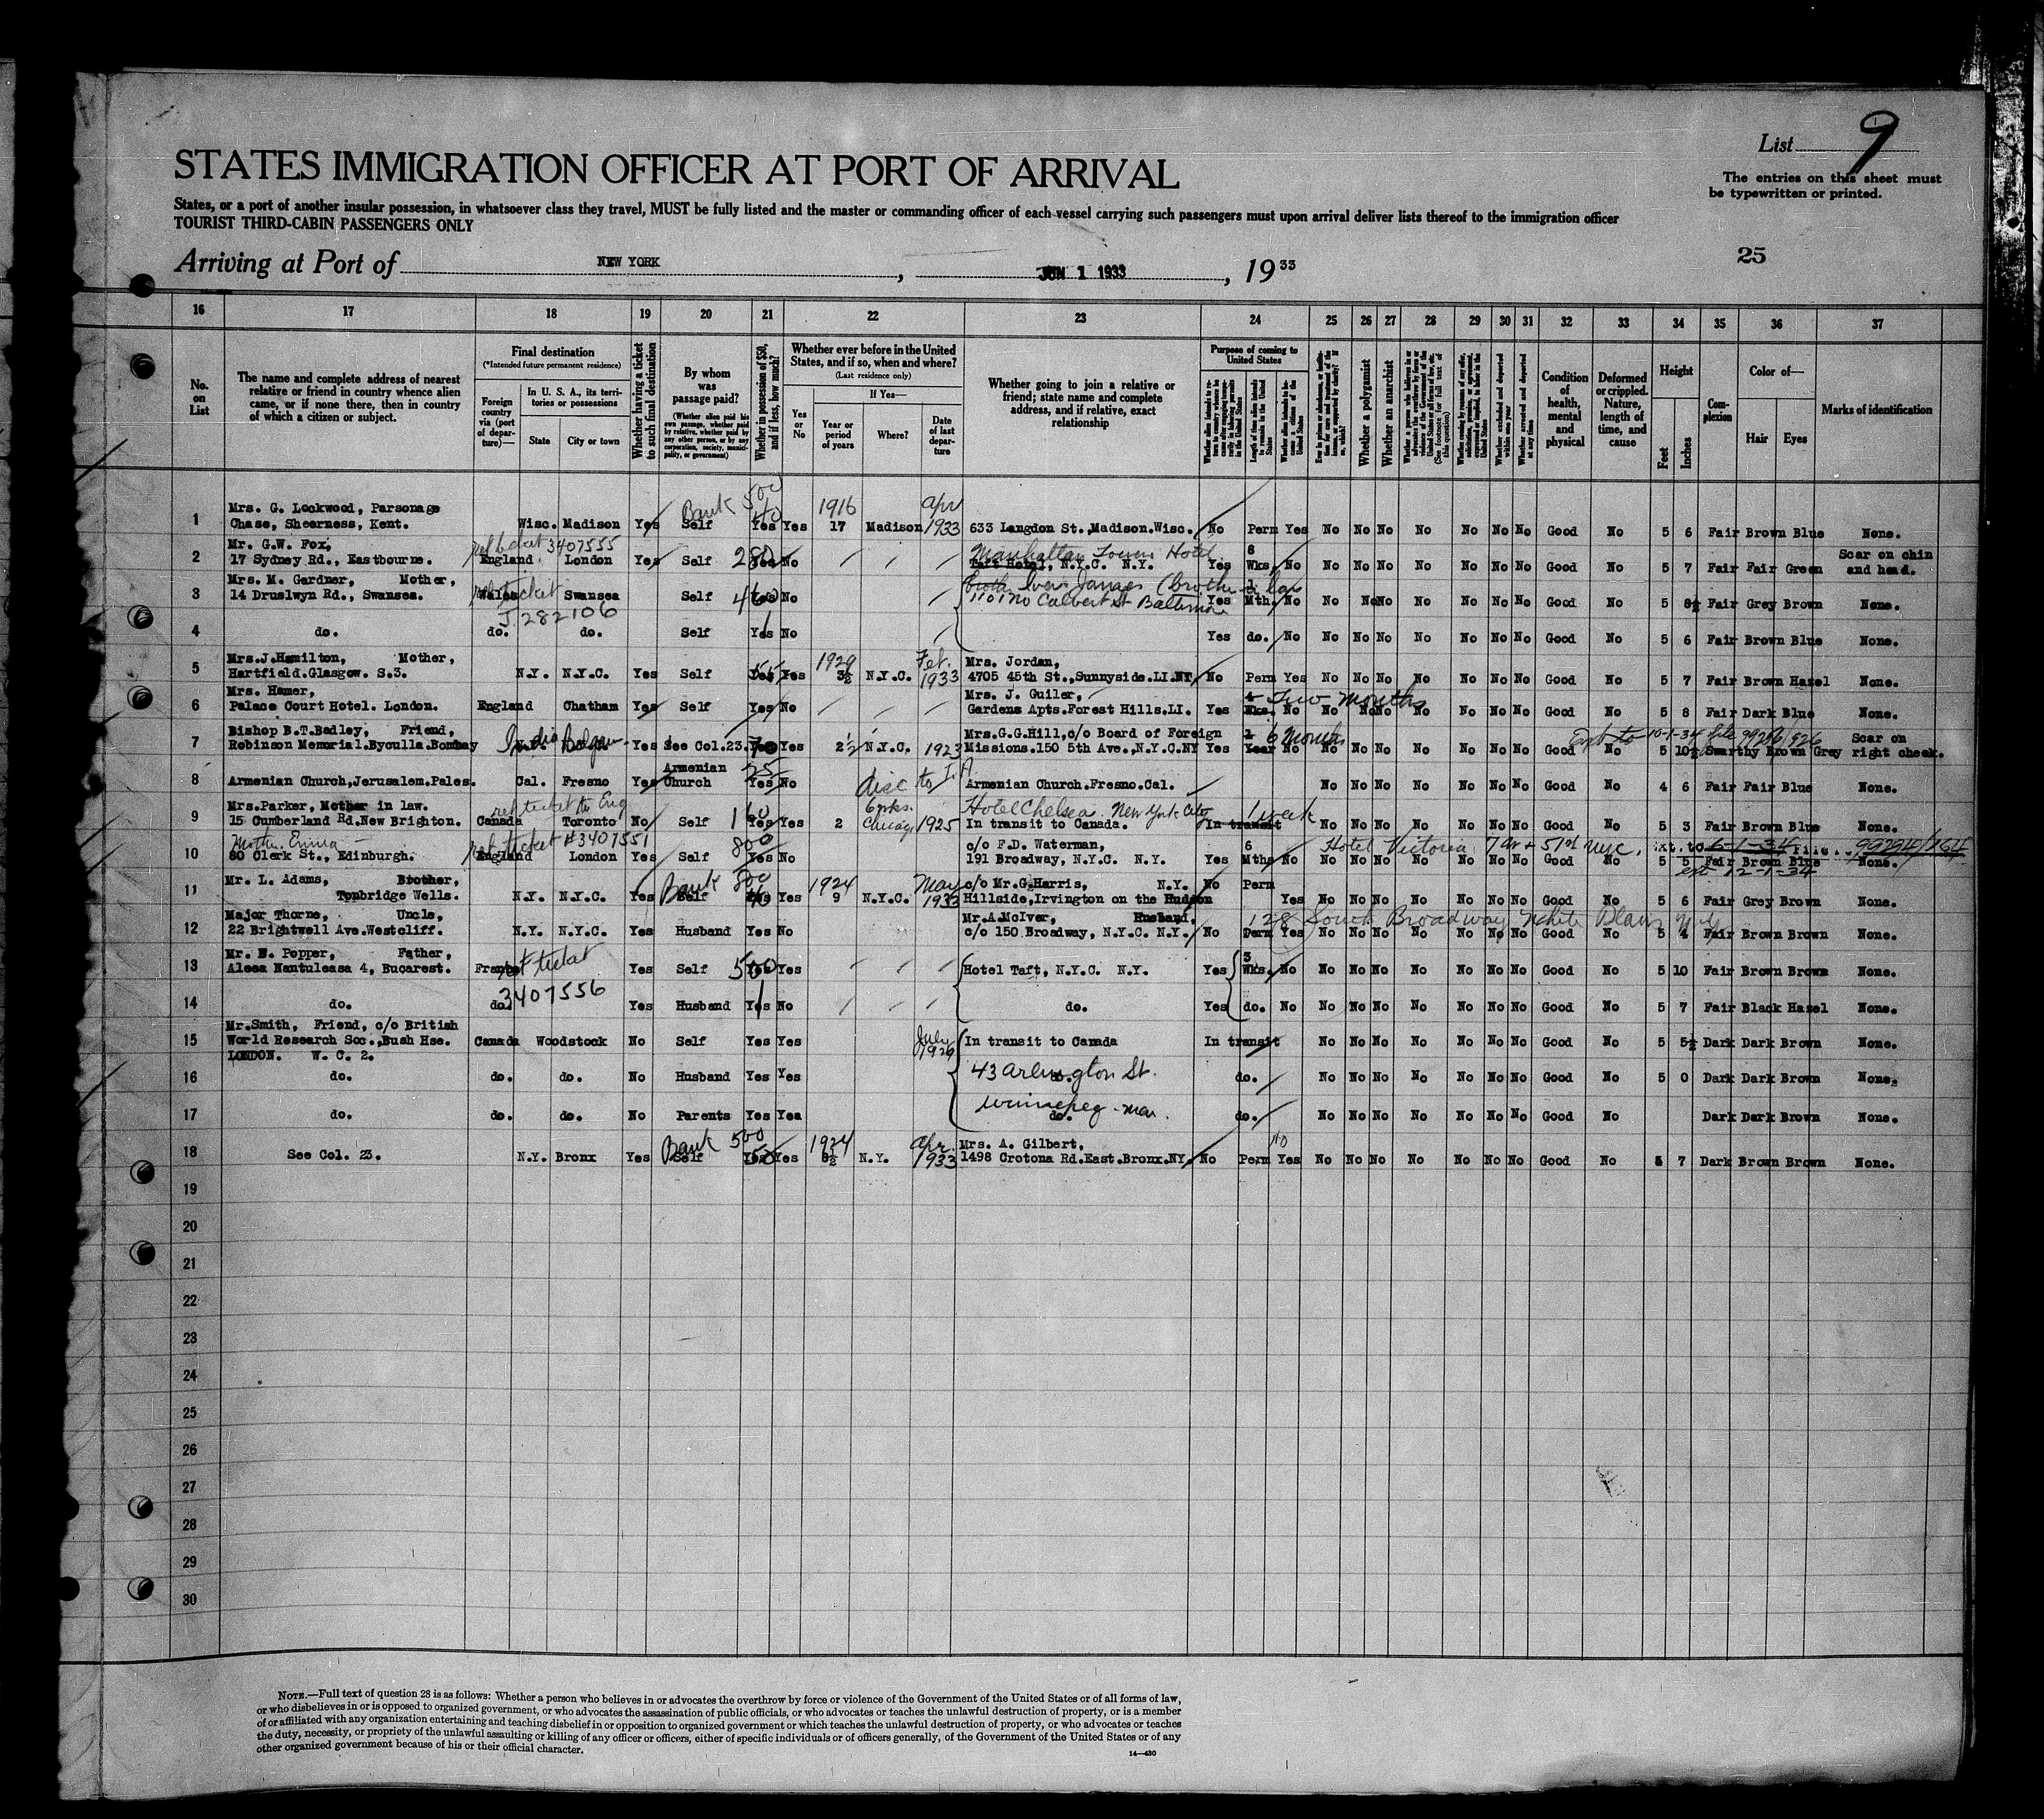 List 9
STATES IMMIGRATION OFFICER AT PORT OF ARRIVAL
The entries on this sheet must
be typewritten or printed.
States, or a port of another insular possession, in whatsoever class they travel, MUST be fully listed and the master or commanding officer of each vessel carrying such passengers must upon arrival deliver lists thereof to the immigration officer
TOURIST THIRD-CABIN PASSENGERS ONLY
Arriving at Port of NEW YORK, JUN 1 1933, 1933
25
16 17 18 19 20 21 22 23 24 25 26 27 28 29 30 31 32 33 34 35 36 37
No. on List
The name and complete address of nearest relative or friend in country whence alien came, or if none there, then in country of which a citizen or subject.
Final destination
(*Intended future permanent residence)
Foreign country via (port of departure)—
In U. S. A., its territories or possessions
State
City or town
Whether having a ticket to such final destination
By whom was passage paid?
(Whether alien paid his own passage, whether paid by relative, whether paid by any other person, or by any corporation, society, municipality, or government)
Whether in possession of $50, and if less, how much?
Whether ever before in the United States, and if so, when and where?
(Last residence only)
Yes or No
If Yes—
Year or period of years
Where?
Date of last departure
Whether going to join a relative or friend; state name and complete address, and if relative, exact relationship
Purpose of coming to United States
Length of time alien intends to remain in the United States
Whether alien intends to become a citizen of the United States
Whether a polygamist
Whether an anarchist
(See footnote for full text of this question)
Whether excluded and deported within one year
Whether arrested and deported at any time
Condition of health, mental and physical
Deformed or crippled. Nature, length of time, and cause
Height
Feet
Inches
Complexion
Color of—
Hair
Eyes
Marks of identification
Mrs. G. Lockwood, Parsonage Bank 500 1916 Apr
1 Chase, Shearness, Kent. Wisc. Madison Yes Self Yes 40 Yes 17 Madison 1933 633 Langdon St.,Madison.Wisc. No Perm Yes No No No No No No No Good No 5 6 Fair Brown Blue None.
Mr. G.W. Fox, ret ticket 3407555 Manhattan Towers Hotel 8 Scar on chin
2 17 Sydney Rd., Eastbourne. England London Yes Self 280 Yes No Taft Hotel, N.Y.C. N.Y. Yes Wks. No No No No No No No No Good No 5 7 Fair Fair Green and head.
Mrs. M. Gardner, Mother, ret ticket
3 14 Druslwyn Rd., Swansea. Wales Swansea Self 460 Yes No Calvert St Baltimore Yes Mth. No No No No No No No No Good No 5 8½ Fair Grey Brown None.
J. 282106
4 do. do. do. Self Yes No Yes do. No No No No No No No No Good No 5 6 Fair Brown Blue None.
Mrs.J.Hamilton, Mother, 1929 Feb. Mrs. Jordan,
5 Hartfield.Glasgow. S.3. N.Y. N.Y.C. Yes Self Yes 55 Yes 3½ N.Y.C. 1933 4705 45th St.,Sunnyside.LI.NY. No Perm Yes No No No No No No No Good No 5 7 Fair Brown Hazel None.
Mrs. Hamer, Mrs. J. Guiler, Two months
6 Palace Court Hotel. London. England Chatham Yes Self Yes No Gardens Apts.Forest Hills.LI. Yes Wks. No No No No No No No No Good No 5 8 Fair Dark Blue None.
Bishop B.T.Badley, Friend, Mrs.G.G.Hill,c/o Board of Foreign 6 months 10-1-34 file Scar on
7 Robinson Memorial.Byculla.Bombay India Yes See Col.23. Yes 2½ N.Y.C. 1923 Missions.150 5th Ave.,N.Y.C.NY Yes Year No No No No No No No No Good No 5 10½ Swarthy Brown Grey right cheek.
Armenian 25
8 Armenian Church,Jerusalem.Pales. Cal. Fresno Yes Church Yes No disc to I.A. Armenian Church.Fresno.Cal. No No No No No No No Good No 4 6 Fair Fair Blue None.
Mrs.Parker, Mother in law. ret ticket to Eng 6 wks. Hotel Chelsea. New York City 1 week
9 15 Cumberland Rd.New Brighton. Canada Toronto No Self 160 Yes Yes 2 Chicago 1925 In transit to Canada. In transit No No No No No No No Good No 5 3 Fair Brown Blue None.
Mother. Emma ret ticket #3407551 800 c/o F.D. Waterman, 6 Hotel Victoria 7 Av + 51st NYC. Ext. to 6-1-34 File 99294/164
10 80 Clerk St., Edinburgh. England London Yes Self Yes No 191 Broadway, N.Y.C. N.Y. Yes Mths No No No No No No No Good No 5 5 Fair Brown Blue None.
ext 12-1-34
Mr. L. Adams, Brother, Bank 800 1924 May c/o Mr.G.Harris, N.Y. No Perm
11 Tonbridge Wells. N.Y. N.Y.C. Yes Self 40 Yes 9 N.Y.C. 1933 Hillside,Irvington on the Hudson Yes No No No No No No No Good No 5 6 Fair Grey Brown None.
Major Thorne, Uncle, Mr.A.McIver, Husband, 128 South Broadway White Plains N.Y.
12 22 Brightwell Ave.Westcliff. N.Y. N.Y.C. Yes Husband Yes No c/o 150 Broadway, N.Y.C. N.Y. No Perm Yes No No No No No No No Good No 5 4 Fair Brown Brown None.
Mr. N. Popper, Father, ret ticket 3
13 Aleea Nantuleasa 4, Bucarest. France Yes Self 500 Yes Yes Hotel Taft, N.Y.C. N.Y. Yes Wks. No No No No No No No No Good No 5 10 Fair Brown Brown None.
3407556
14 do. do. Yes Husband Yes No do. Yes do. No No No No No No No No Good No 5 7 Fair Black Hazel None.
Mr.Smith, Friend, c/o British July
15 World Research Soc.,Bush Hse. Canada Woodstock No Self Yes Yes 1926 In transit to Canada In transit No No No No No No No Good No 5 5½ Dark Dark Brown None.
LONDON. W. C. 2.
16 do. do. do. No Husband Yes Yes 43 Arlington St. do. No No No No No No No Good No 5 0 Dark Dark Brown None.
17 do. do. do. No Parents Yes Yes Winnepeg - Man. do. No No No No No No No Good No Dark Dark Brown None.
Bank 500 1924 Apr. Mrs. A. Gilbert, No
18 See Col. 23. N.Y. Bronx Yes Self Yes 50 Yes 8½ N.Y. 1933 1498 Crotona Rd.East.Bronx.NY. No Perm Yes No No No No No No No Good No 5 7 Dark Brown Brown None.
19
20
21
22
23
24
25
26
27
28
29
30
NOTE.—Full text of question 28 is as follows: Whether a person who believes in or advocates the overthrow by force or violence of the Government of the United States or of all forms of law,
or who disbelieves in or is opposed to organized government, or who advocates the assassination of public officials, or who advocates or teaches the unlawful destruction of property, or is a member
of or affiliated with any organization entertaining and teaching disbelief in or opposition to organized government or which teaches the unlawful destruction of property, or who advocates or teaches
the duty, necessity, or propriety of the unlawful assaulting or killing of any officer or officers, either of specific individuals or of officers generally, of the Government of the United States or of any
other organized government because of his or their official character.
14—430